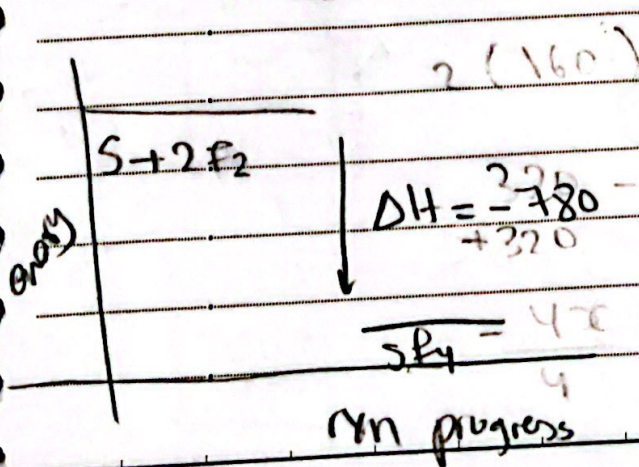 2 (160)
S + 2F2
320 -
ΔH = -780
+320
energy
SF4 = 4x
4
rxn progress